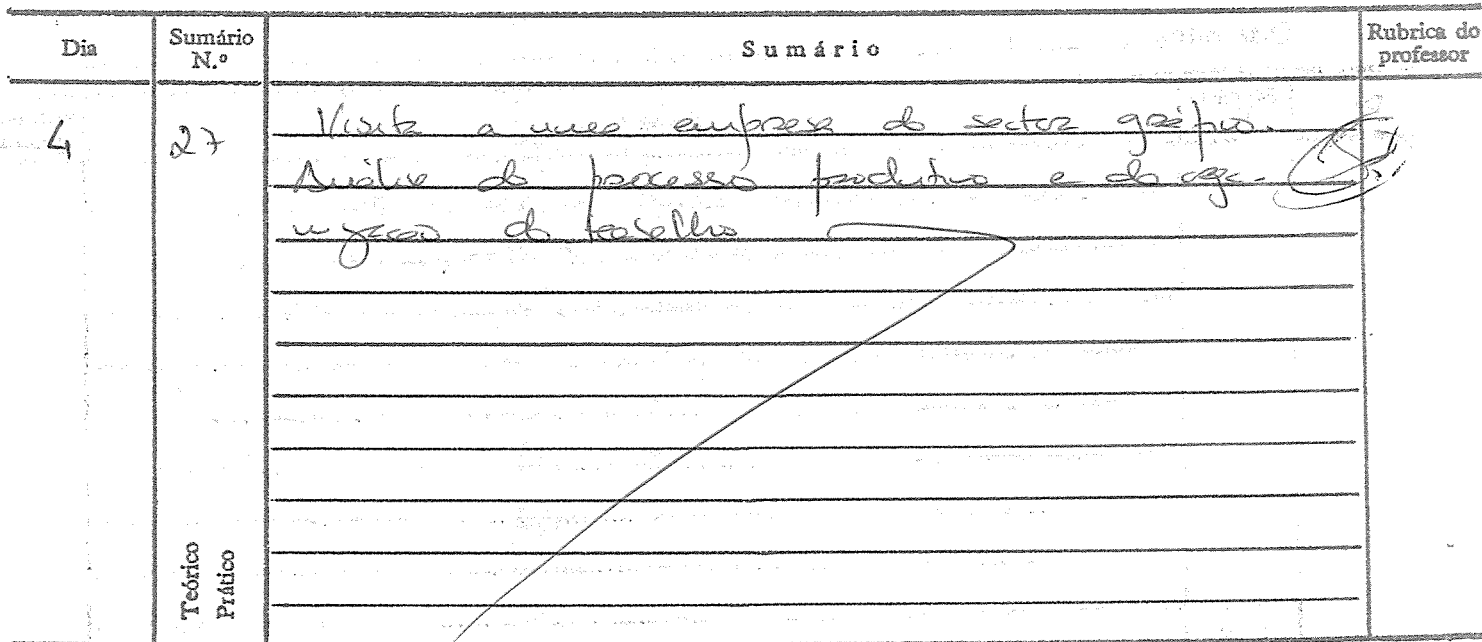 Dia Sumário N.º Sumário Rubrica do professor
4 27 Visita a uma empresa do sector gráfico.
Análise do processo produtivo e da orga-
nização do trabalho
Teórico
Prático